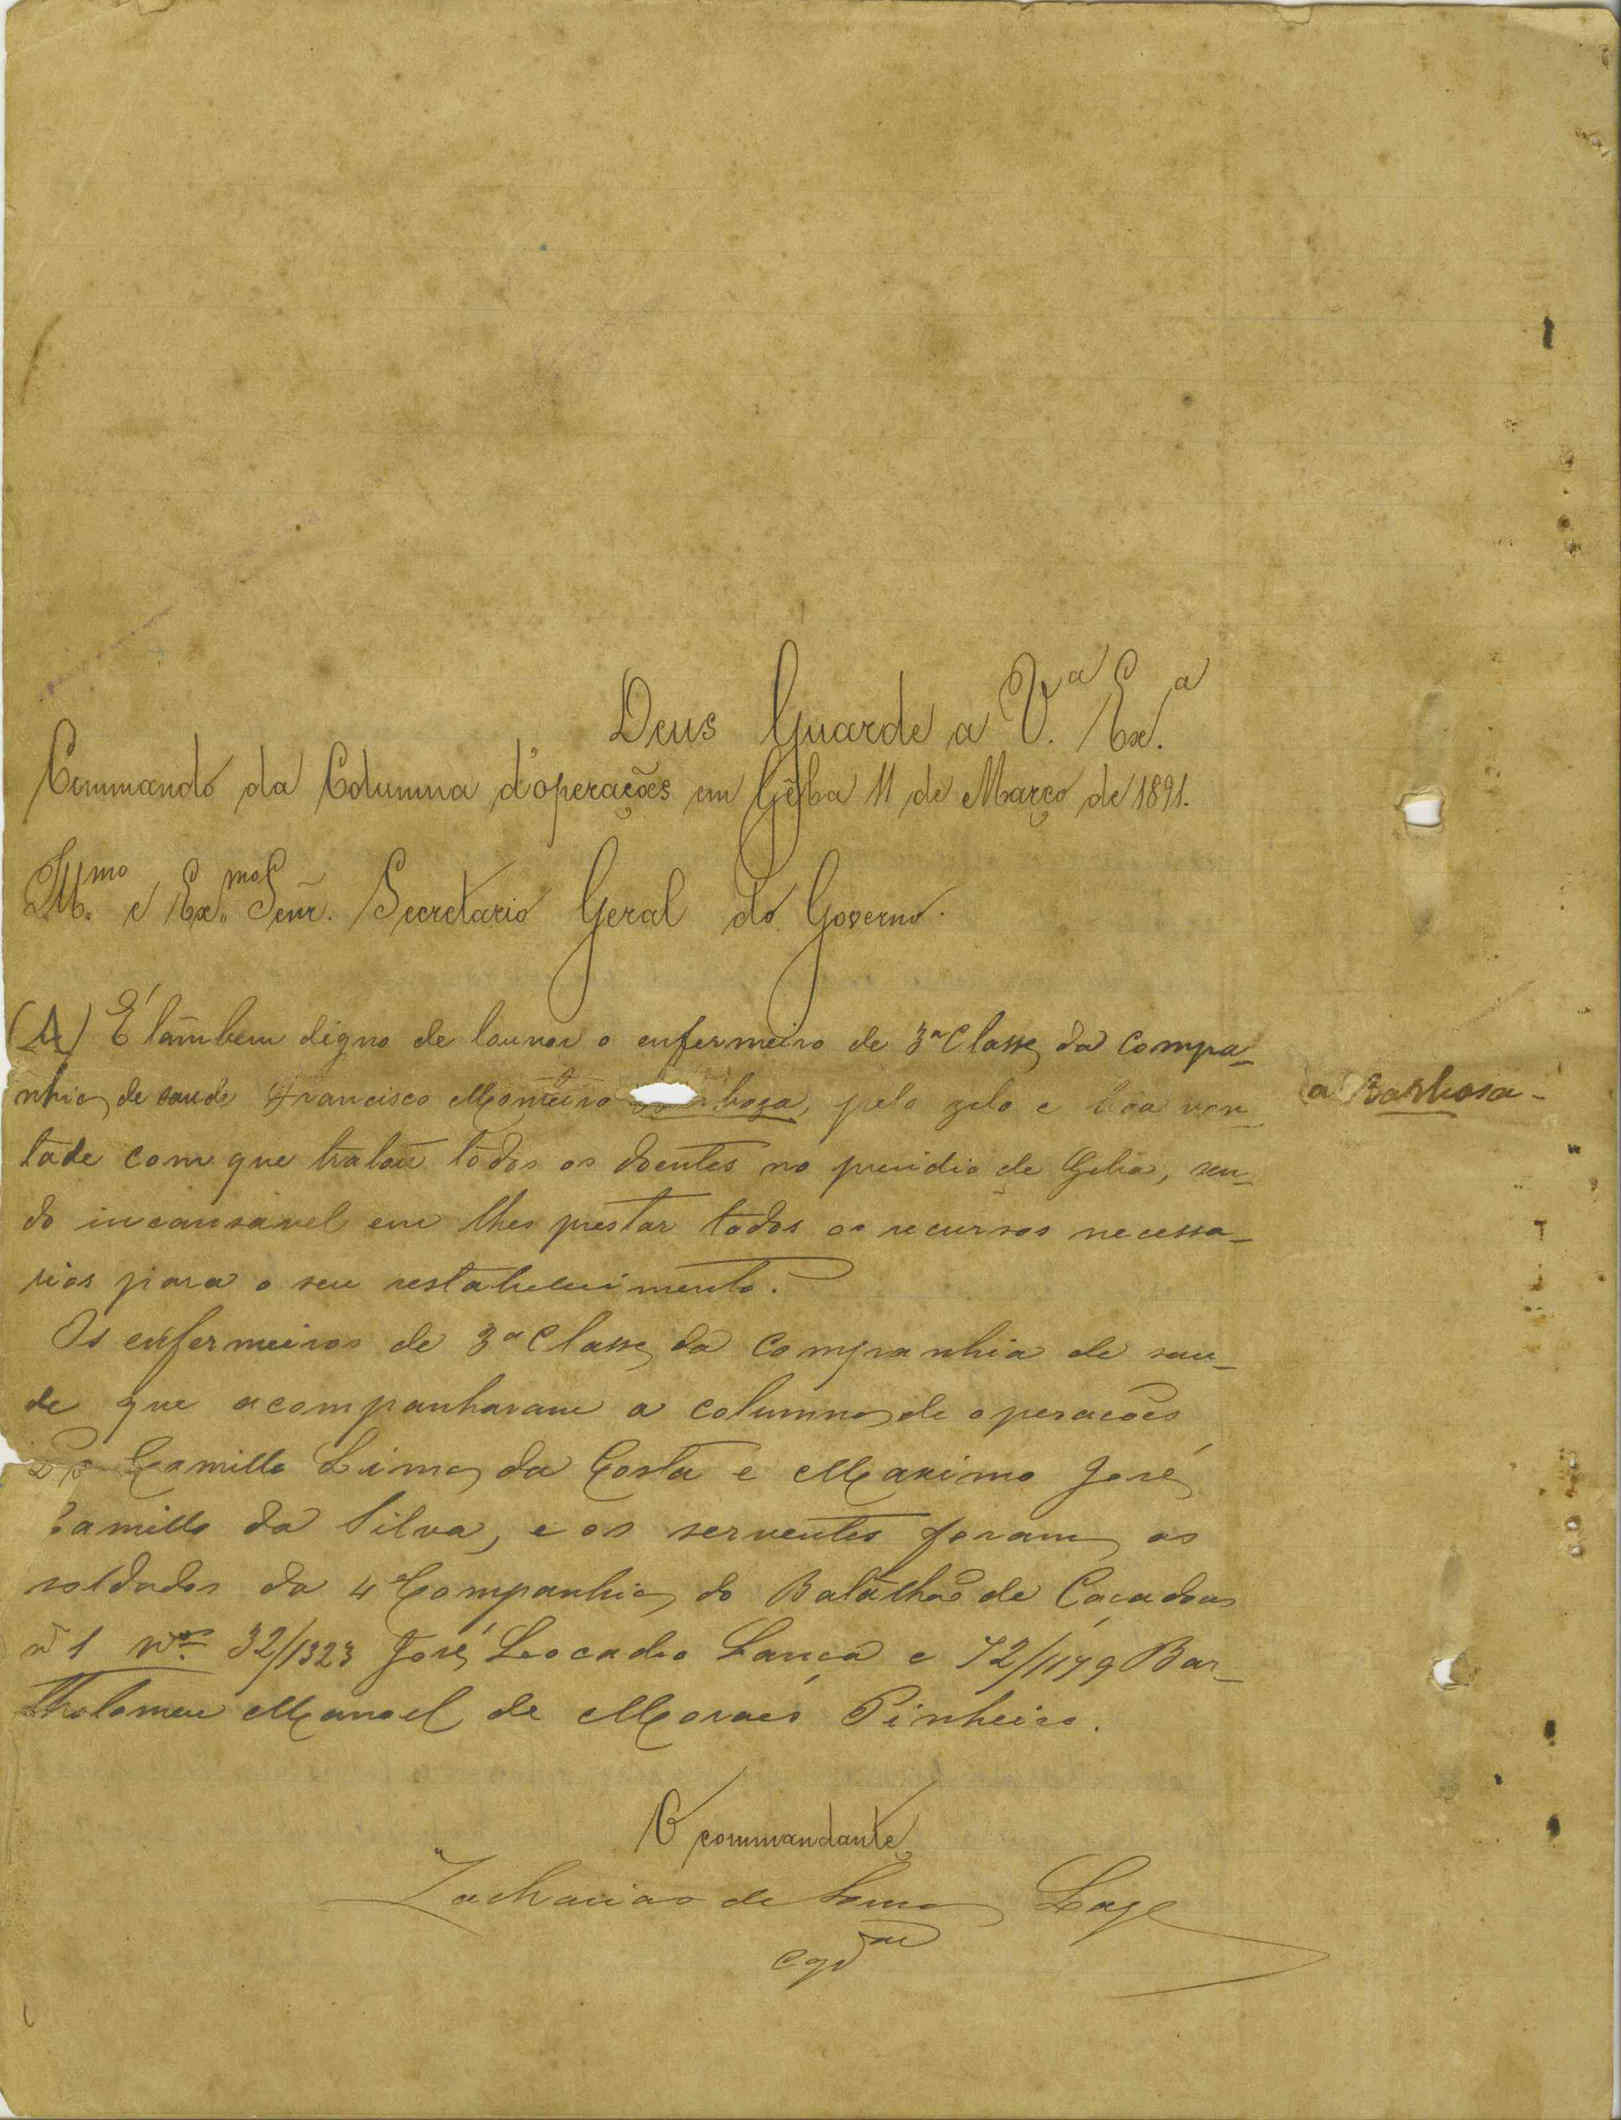 Deus Guarde a V.ª Ex.ª
Commando da Columna d'operações em Gêba 11 de Março de 1891.
Ill.mo e Ex.mo Senr. Secretario Geral do Governo.
(A) É tambem digno de louvor o enfermeiro de 3ª classe da compa-
nhia de saude Francisco Monteiro boza, pelo zelo e boa von-
a Barbosa -
tade com que tratou todos os doentes no presidio de Geba, sen-
do incansavel em lhes prestar todos os recursos necessa-
rios para o seu restabelecimento.
Os enfermeiros de 3ª classe da companhia de sau-
de que acompanharam a columna de operações
Camillo Lima da Costa e Maximo José
Camillo da Silva, e os serventes foram os
soldados da 4ª Companhia do Batalhão de Caçadores
nº 1 nos 32/1323 José Leocadio Lança e 72/1179 Bar-
tholomeu Manoel de Moraes Pinheiro.
O commandante
Zacharias de Souza Lage